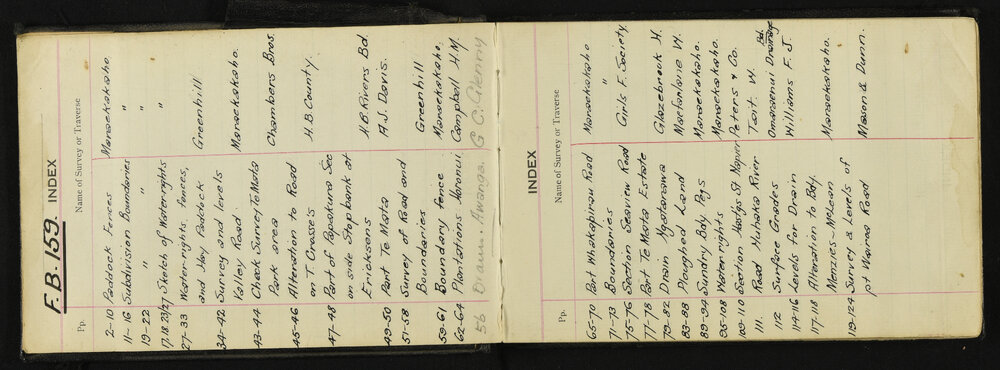 F.B. 159. INDEX
Pp. Name of Survey or Traverse
2-10 Paddock Fences Maraekakaho
11-16 Subdivision Boundaries "
19-22 " " "
17-18 23/27 Sketch of Water-rights "
27-33 Water-rights, Fences,
and Hay Paddock Greenhill
34-42 Survey and levels
Valley Road Maraekakaho.
43-44 Check Survey Te Mata
Park area Chambers Bros.
45-46 Alteration to Road
on T. Crosse's H.B. County.
47-48 Part of Papakura Sec
on side Stopbank at
Ericksons H.B. Rivers Bd
49-50 Part Te Mata A.J. Davis.
51-58 Survey of Road and
Boundaries Greenhill
59-61 Boundary Fence Maraekakaho.
62-64 Plantations Horonui Campbell H.M.
56 Drain. Awanga. G C. Glenny
INDEX
Pp. Name of Survey or Traverse
65-70 Part Whakapirau Road Maraekakaho
71-73 Boundaries "
75-76 Section Seaview Road Girls F. Society.
77-78 Part Te Mata Estate
79-82 Drain Ngatarawa Glazebrook H.
83-88 Ploughed Land Macfarlane W.
89-94 Sundry Bdy Pegs Maraekakaho.
95-108 Water-rights Maraekakaho.
109-110 Section Hastgs St Napier Peters & Co.
111. Road Nuhaka River Tait W.
112 Surface Grades Omaranui Drainage Bd.
114-116 Levels for Drain Williams F. J.
117-118 Alteration to Bdy.
Menzies - McLean Maraekakaho.
119-124 Survey & Levels of
pt Wairoa Road Mason & Dunn.